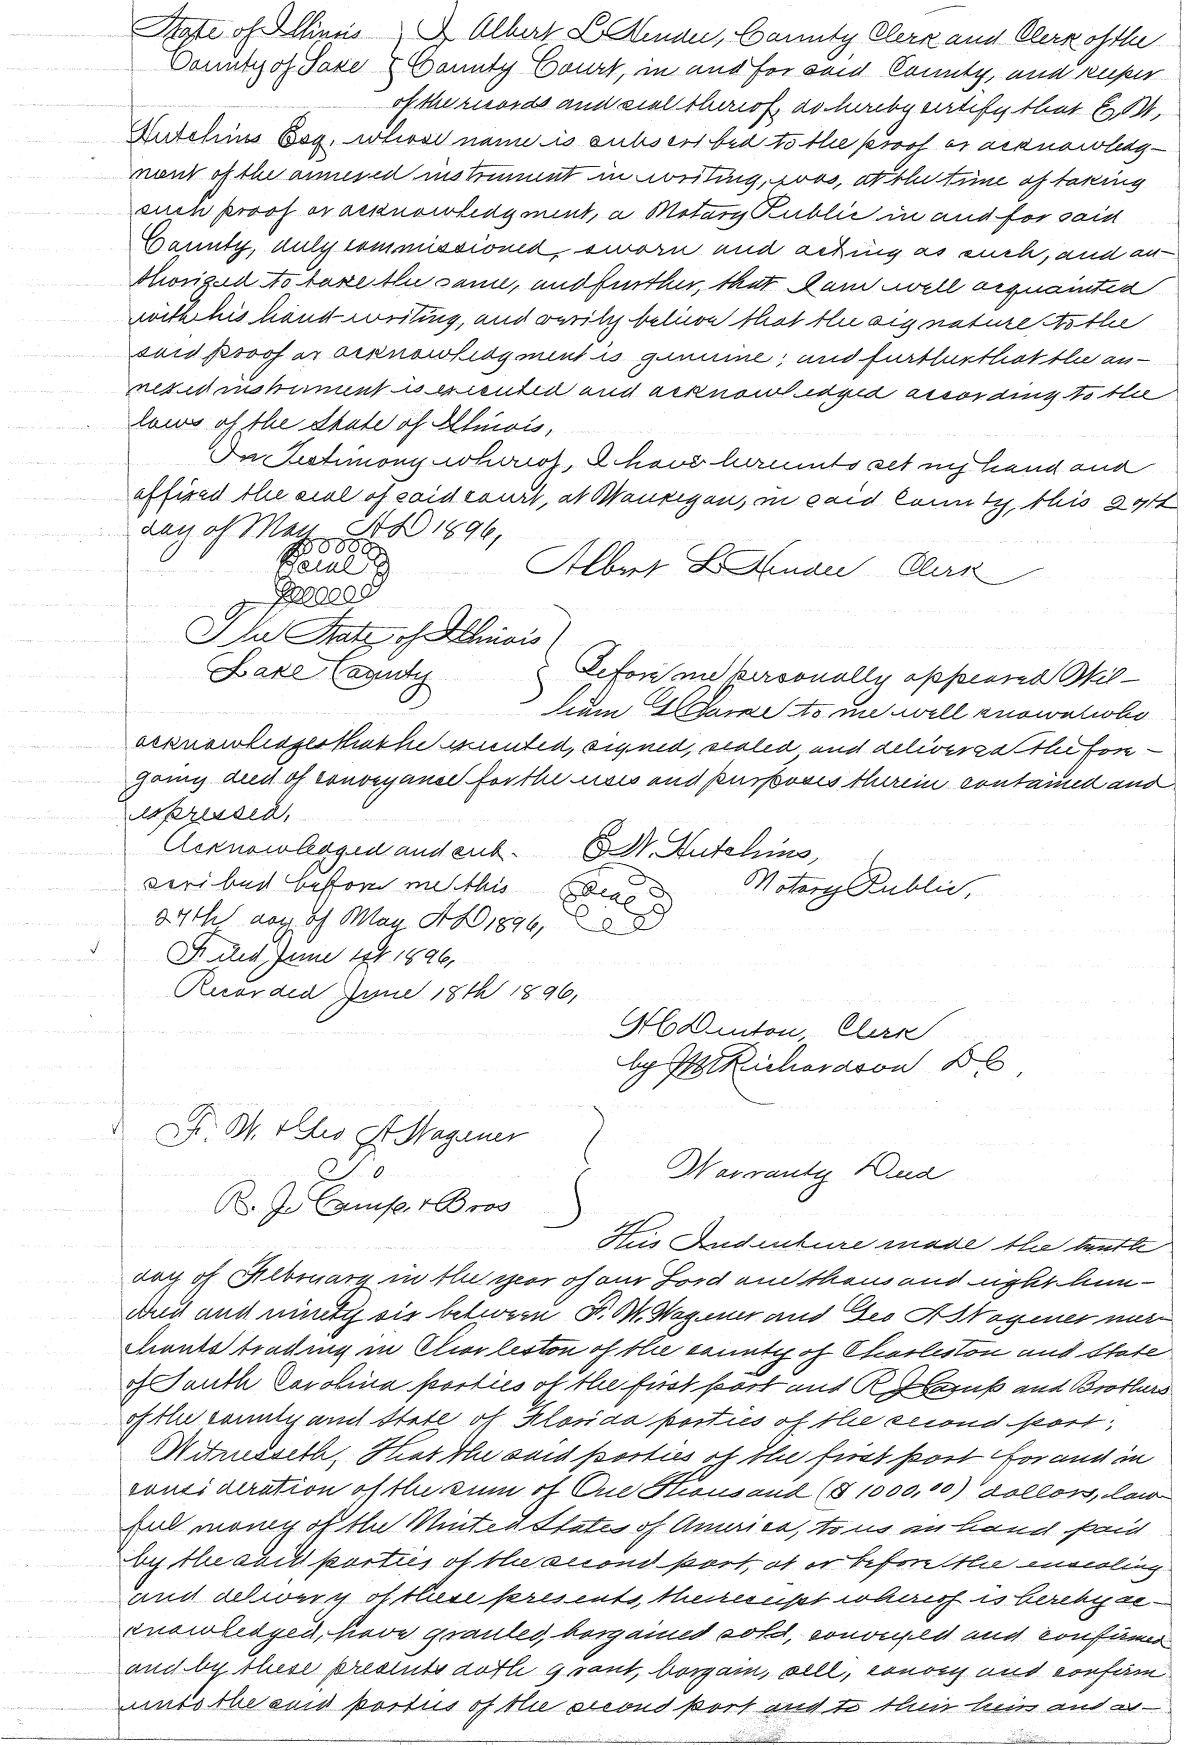 State of Illinois } I Albert L Hendee, County Clerk and Clerk of the
County of Lake } County Court, in and for said County, and keeper
of the records and seal thereof, do hereby certify that E. W.
Hutchins Esq. whose name is subscribed to the proof or acknowledg-
ment of the annexed instrument in writing, was, at the time of taking
such proof or acknowledgment, a Notary Public in and for said
County, duly commissioned, sworn and acting as such, and au-
thorized to take the same, and further, that I am well acquainted
with his hand writing, and verily believe that the signature to the
said proof or acknowledgment is genuine; and further that the an-
nexed instrument is executed and acknowledged according to the
laws of the State of Illinois,
In Testimony whereof, I have hereunto set my hand and
affixed the seal of said court, at Waukegan, in said County, this 27th
day of May AD 1896,
Seal
Albert L Hendee Clerk
The State of Illinois }
Lake County } Before me personally appeared Wil-
liam G to me well known who
acknowledges that he executed, signed, sealed, and delivered the fore-
going deed of conveyance for the uses and purposes therein contained and
expressed.
Acknowledged and sub- E W. Hutchins,
scribed before me this Seal Notary Public,
27th day of May AD 1896,
Filed June 1st 1896,
Recorded June 18th 1896,
H C Denton, Clerk
by Richardson D C,
F. W. & Geo A Wagener
To
R. J. Camp & Bros
Warranty Deed
This Indenture made the tenth
day of February in the year of our Lord one thousand eight hun-
dred and ninety six between F. W. Wagener and Geo A Wagener mer-
chants trading in Charleston of the county of Charleston and State
of South Carolina parties of the first part and R J Camp and Brothers
of the county and State of Florida parties of the second part;
Witnesseth, That the said parties of the first part for and in
consideration of the sum of One Thousand ($1000.00) dollars, law
ful money of the United States of America, to us in hand paid
by the said parties of the second part, at or before the ensealing
and delivery of these presents, the receipt whereof is hereby ac-
knowledged, have granted, bargained sold, conveyed and confirmed
and by these presents doth grant, bargain, sell, convey and confirm
unto the said parties of the second part and to their heirs and as-